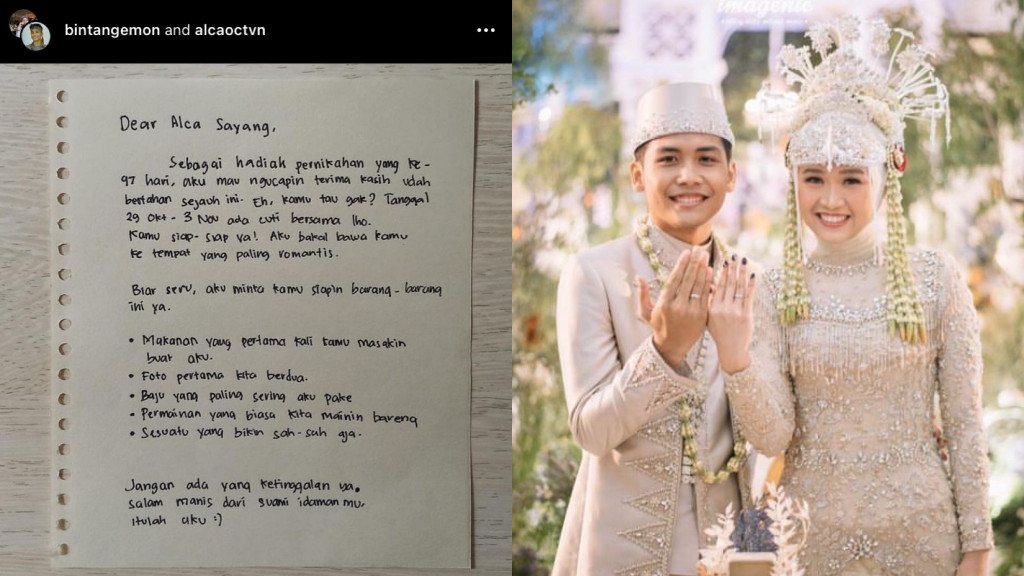 bintangemon and alcaoctvn
Dear Alca Sayang,
Sebagai hadiah pernikahan yang ke-
97 hari, aku mau ngucapin terima kasih udah
bertahan sejauh ini. Eh, kamu tau gak? Tanggal
29 Okt - 3 Nov ada cuti bersama lho.
Kamu siap-siap ya! Aku bakal bawa kamu
ke tempat yang paling romantis.
Biar seru, aku minta kamu siapin barang-barang
ini ya.
• Makanan yang pertama kali kamu masakin
buat aku.
• Foto pertama kita berdua.
• Baju yang paling sering aku pake
• Permainan yang biasa kita mainin bareng
• Sesuatu yang bikin sah-sah aja.
Jangan ada yang ketinggalan ya,
salam manis dari suami idaman mu.
Itulah aku :)
imagenic